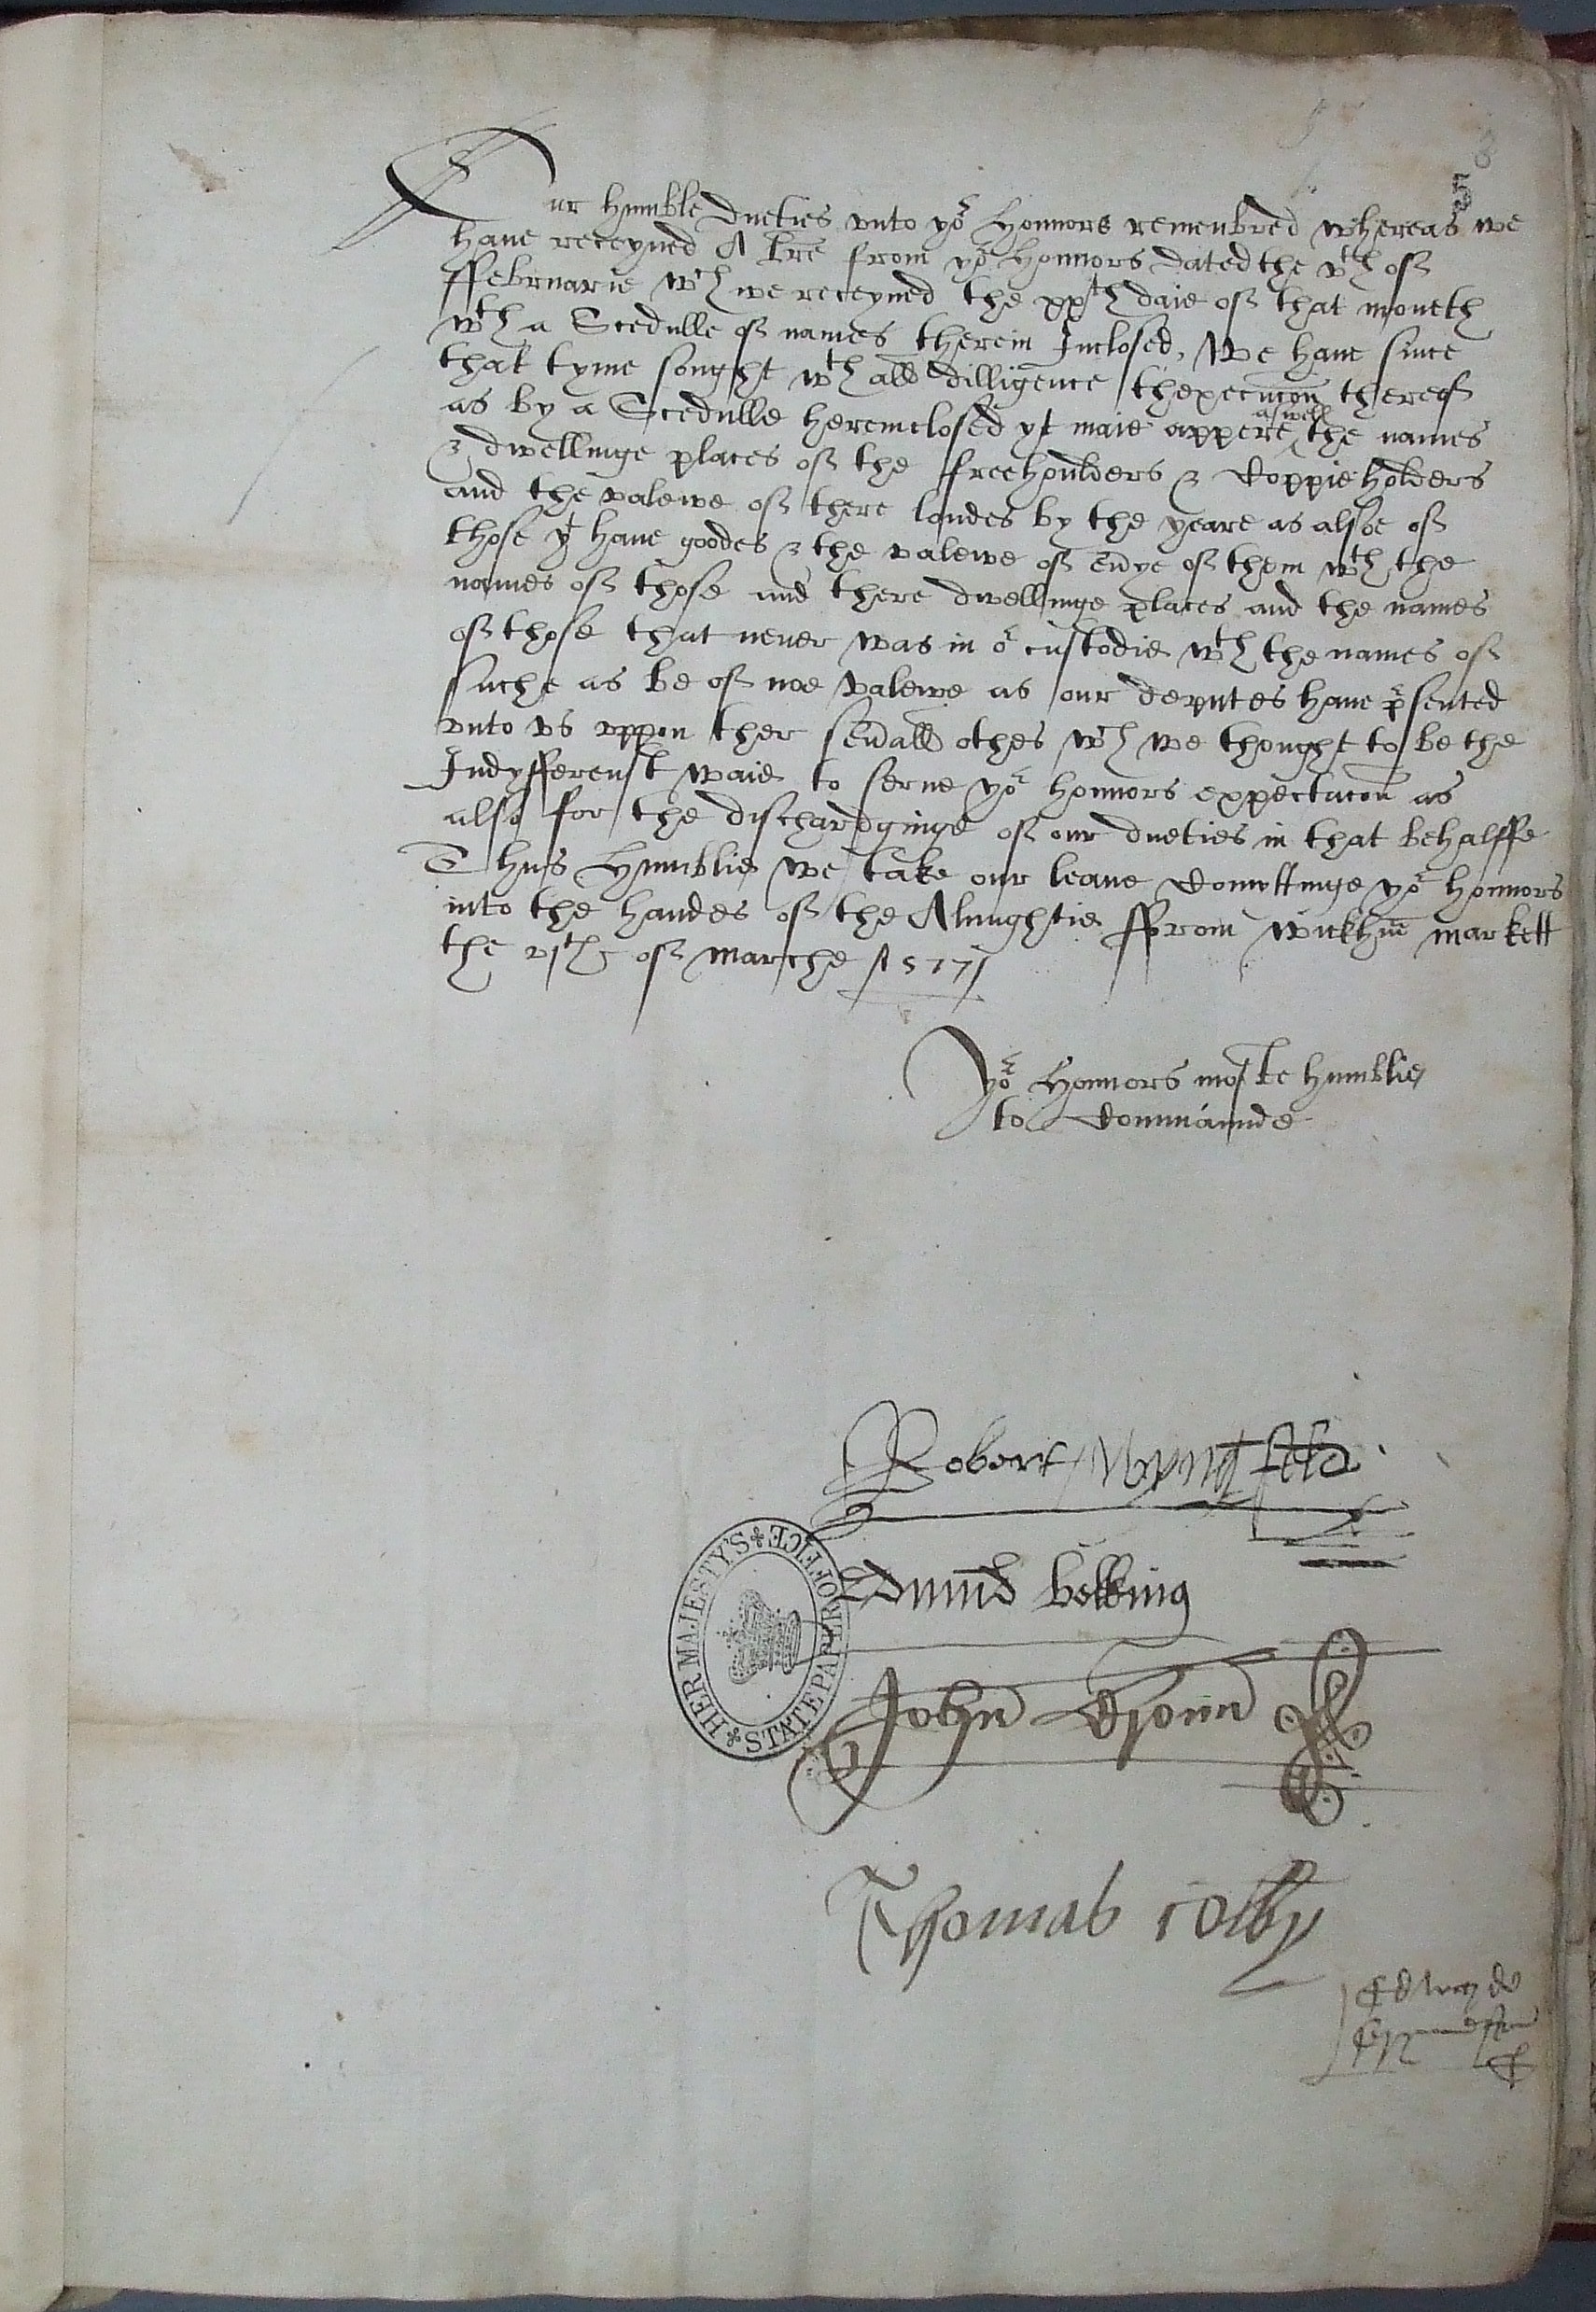 5
Our humble dueties vnto yor Honnors remenbred whereas we
haue receyued A lre from yor Honnors dated the vth of
ffebruarie wch we receyued the xxth daie of that moneth
wth a Scedulle of names therein Inclosed, We haue since
that tyme sought wth all dilligence thexecucon thereof
as by a Scedulle hereinclosed yt maie appere aswell the names
& dwellinge places of the freehoulders & Coppieholders
and the valewe of there londes by the yeare as alsoe of
those yt haue goodes & the valewe of eu'ye of them wth the
names of those and there dwellinge places and the names
of those that neuer was in or custodie wth the names of
suche as be of noe valewe as our deputes haue p'sented
vnto vs vppon ther seu'all othes wch we thought to be the
Indyfferenst waie to serue yor honnors expectacon as
also for the dischardginge of our dueties in that behalffe
Thus Humblie we take our leaue Comyttinge yor honnors
into the handes of the Almightie ffrom Wickhm markett
the vjth of marche 1577
yor Honnors moste humblie
to Commaunde
Robert Wyngfeld
Edmund
John
Thomas Colby
HER MAJESTY'S STATE PAPER OFFICE